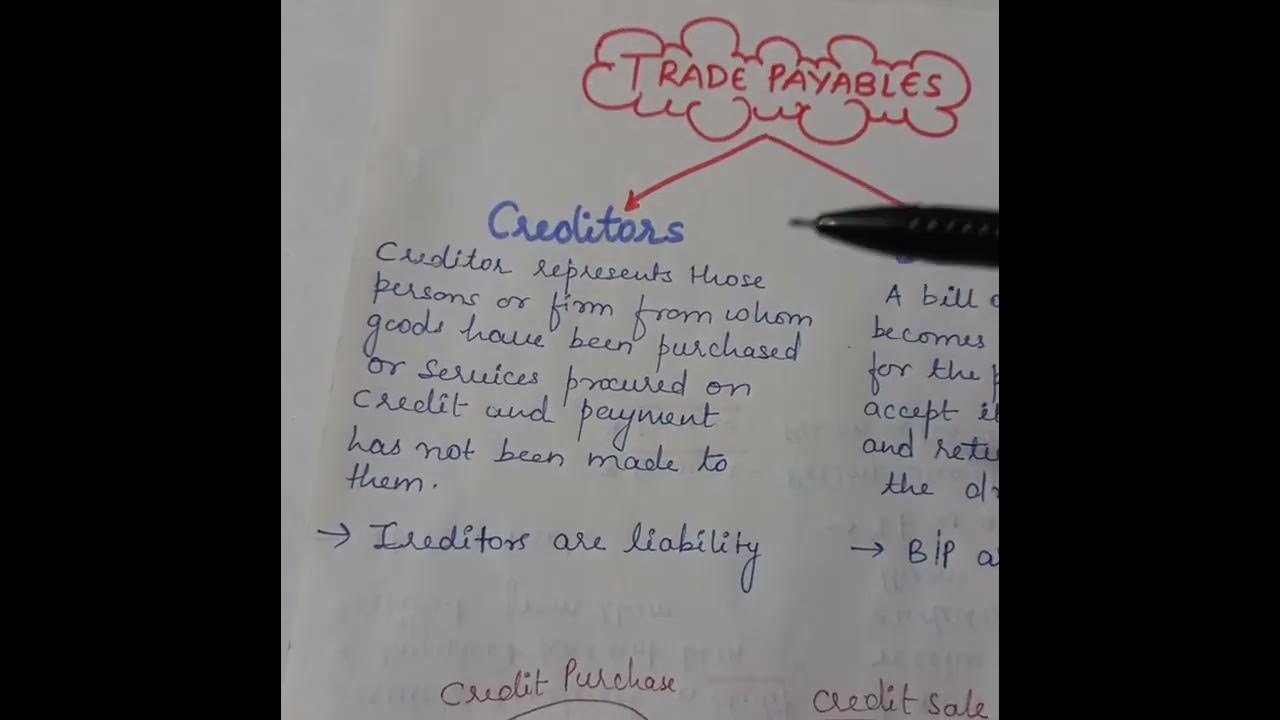 TRADE PAYABLES
Creditors
Creditor represents those
persons or firm from whom
goods have been purchased
or services procured on
credit and payment
has not been made to
them.
→ Creditors are liability
A bill
becomes
for the
accept
and
the
→ B/P
Credit Purchase
Credit Sale